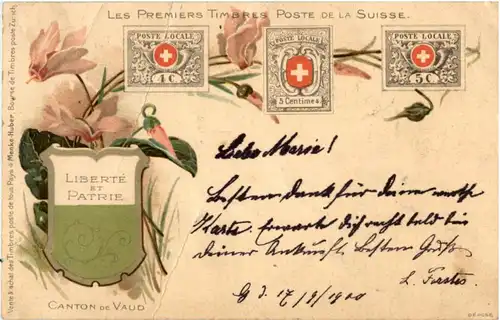 LES PREMIERS TIMBRES POSTE DE LA SUISSE.
POSTE LOCALE
4 C
POSTE LOCALE
5 Centimes
POSTE LOCALE
5 C
Vente & achat des Timbres poste de tous Pays
Bourse de Timbres poste Zurich.
LIBERTÉ
ET
PATRIE
CANTON DE VAUD
Liebe Marie!
Besten Dank für Deine werthe
Karte. erwarte dich recht bald
deiner Ankunft. Besten Gruss
17/9/1900